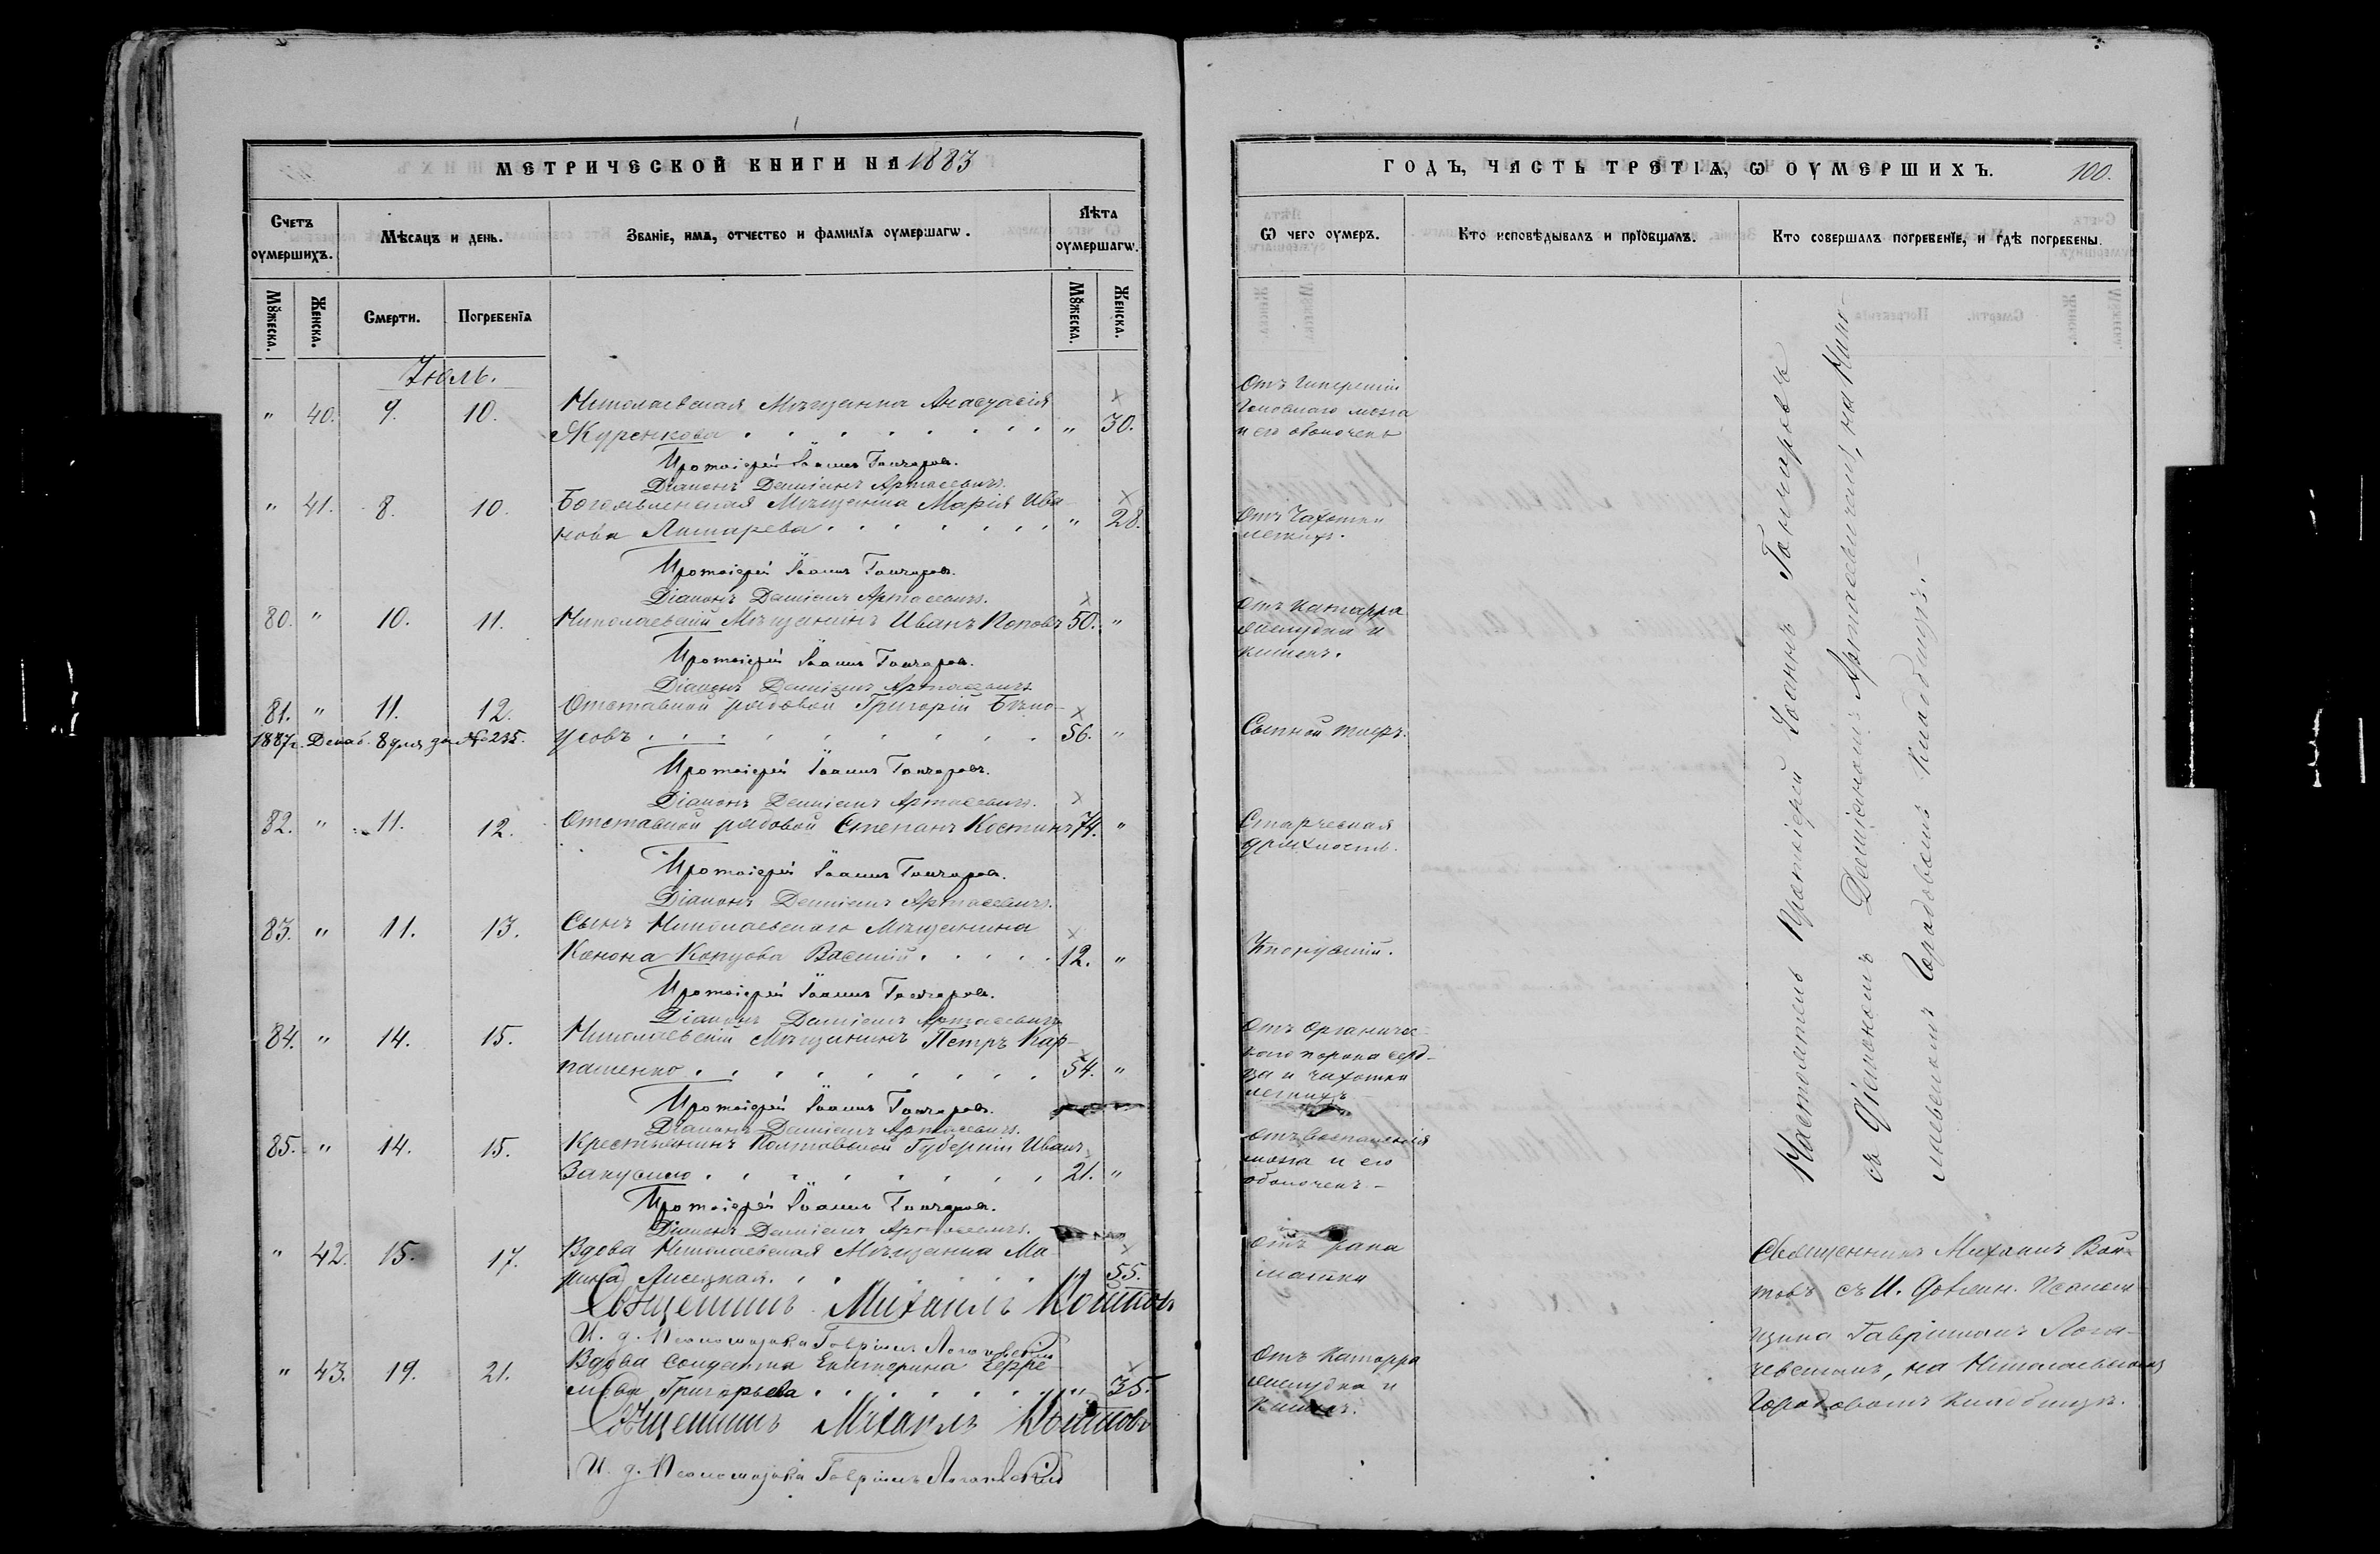 МЕТРИЧЕСКОЙ КНИГИ НА 1883
Счетъ оумершихъ.
Мѣсяцъ и день.
Званїе, имя, отчество и фамилїя оумершагѡ.
Лѣта оумершагѡ.
Мꙋжеска.
Женска.
Смерти.
Погребенїя
Мꙋжеска.
Женска.
Іюль.
" 40. 9. 10. Николаевская Мѣщанка Анастасія
Журенкова " 30.
Протоіерей Іоаннъ Гончаровъ.
Діаконъ Даміанъ Артасевичъ.
" 41. 8. 10. Богоявленская Мѣщанка Марія Ива
нова " 28.
Протоіерей Іоаннъ Гончаровъ.
Діаконъ Даміанъ Артасевичъ.
80. " 10. 11. Николаевскій Мѣщанинъ Иванъ Поповъ 50. "
Протоіерей Іоаннъ Гончаровъ.
Діаконъ Даміанъ Артасевичъ.
81. " 11. 12. Отставной рядовой Григорій Бѣло-
1887г. Декаб. 8 дня за № 235. усовъ 56. "
Протоіерей Іоаннъ Гончаровъ.
Діаконъ Даміанъ Артасевичъ.
82. " 11. 12. Отставной рядовой Степанъ Костинъ 74. "
Протоіерей Іоаннъ Гончаровъ.
Діаконъ Даміанъ Артасевичъ.
83. " 11. 13. Сынъ Николаевскаго Мѣщанина
Конона Копцова Василій 12. "
Протоіерей Іоаннъ Гончаровъ.
Діаконъ Даміанъ Артасевичъ.
84. " 14. 15. Николаевскій Мѣщанинъ Петръ Кар-
пашенко 54. "
Протоіерей Іоаннъ Гончаровъ.
Діаконъ Даміанъ Артасевичъ.
85. " 14. 15. Крестьянинъ Полтавской Губерніи Иванъ
21. "
Протоіерей Іоаннъ Гончаровъ.
Діаконъ Даміанъ Артасевичъ.
" 42. 15. 17. Вдова Николаевская Мѣщанка Ма
рина Лисецкая " 55.
Священникъ Михаилъ
И. д. Псаломщика Гавріилъ
" 43. 19. 21. Вдова солдатка Екатерина Ефре
мова Григорьева " 35.
Священникъ Михаилъ
И. д. Псаломщика Гавріилъ
ГОДЪ, ЧАСТЬ ТРЕТІѦ, Ѡ ОУМЕРШИХЪ. 100.
Ѿ чего оумеръ.
Кто исповѣдывалъ и прїобщалъ.
Кто совершалъ погребенїе, и гдѣ погребены.
Отъ Гипереміи
Головнаго мозга
и его оболочекъ
Отъ Чахотки
легкихъ.
Отъ Катарра
желудка и
кишекъ.
Сыпной тифъ.
Старческая
дряхлость.
Утонувшій.
Отъ Органичес-
каго порока серд-
ца и чахотки
легкихъ
отъ Воспаленія
мозга и его
оболочекъ –
Отъ рака
матки
Отъ Катарра
желудка и
кишекъ.
Настоятель Протоіерей Іоаннъ Гончаровъ
съ Діакономъ Даміаномъ Артасевичемъ, на Нико-
лаевскомъ Городовомъ Кладбищѣ. –
Священникъ Михаилъ
съ И. Должн. Псалом
щика Гавріиломъ
на Николаевскомъ
Городовомъ Кладбищѣ.